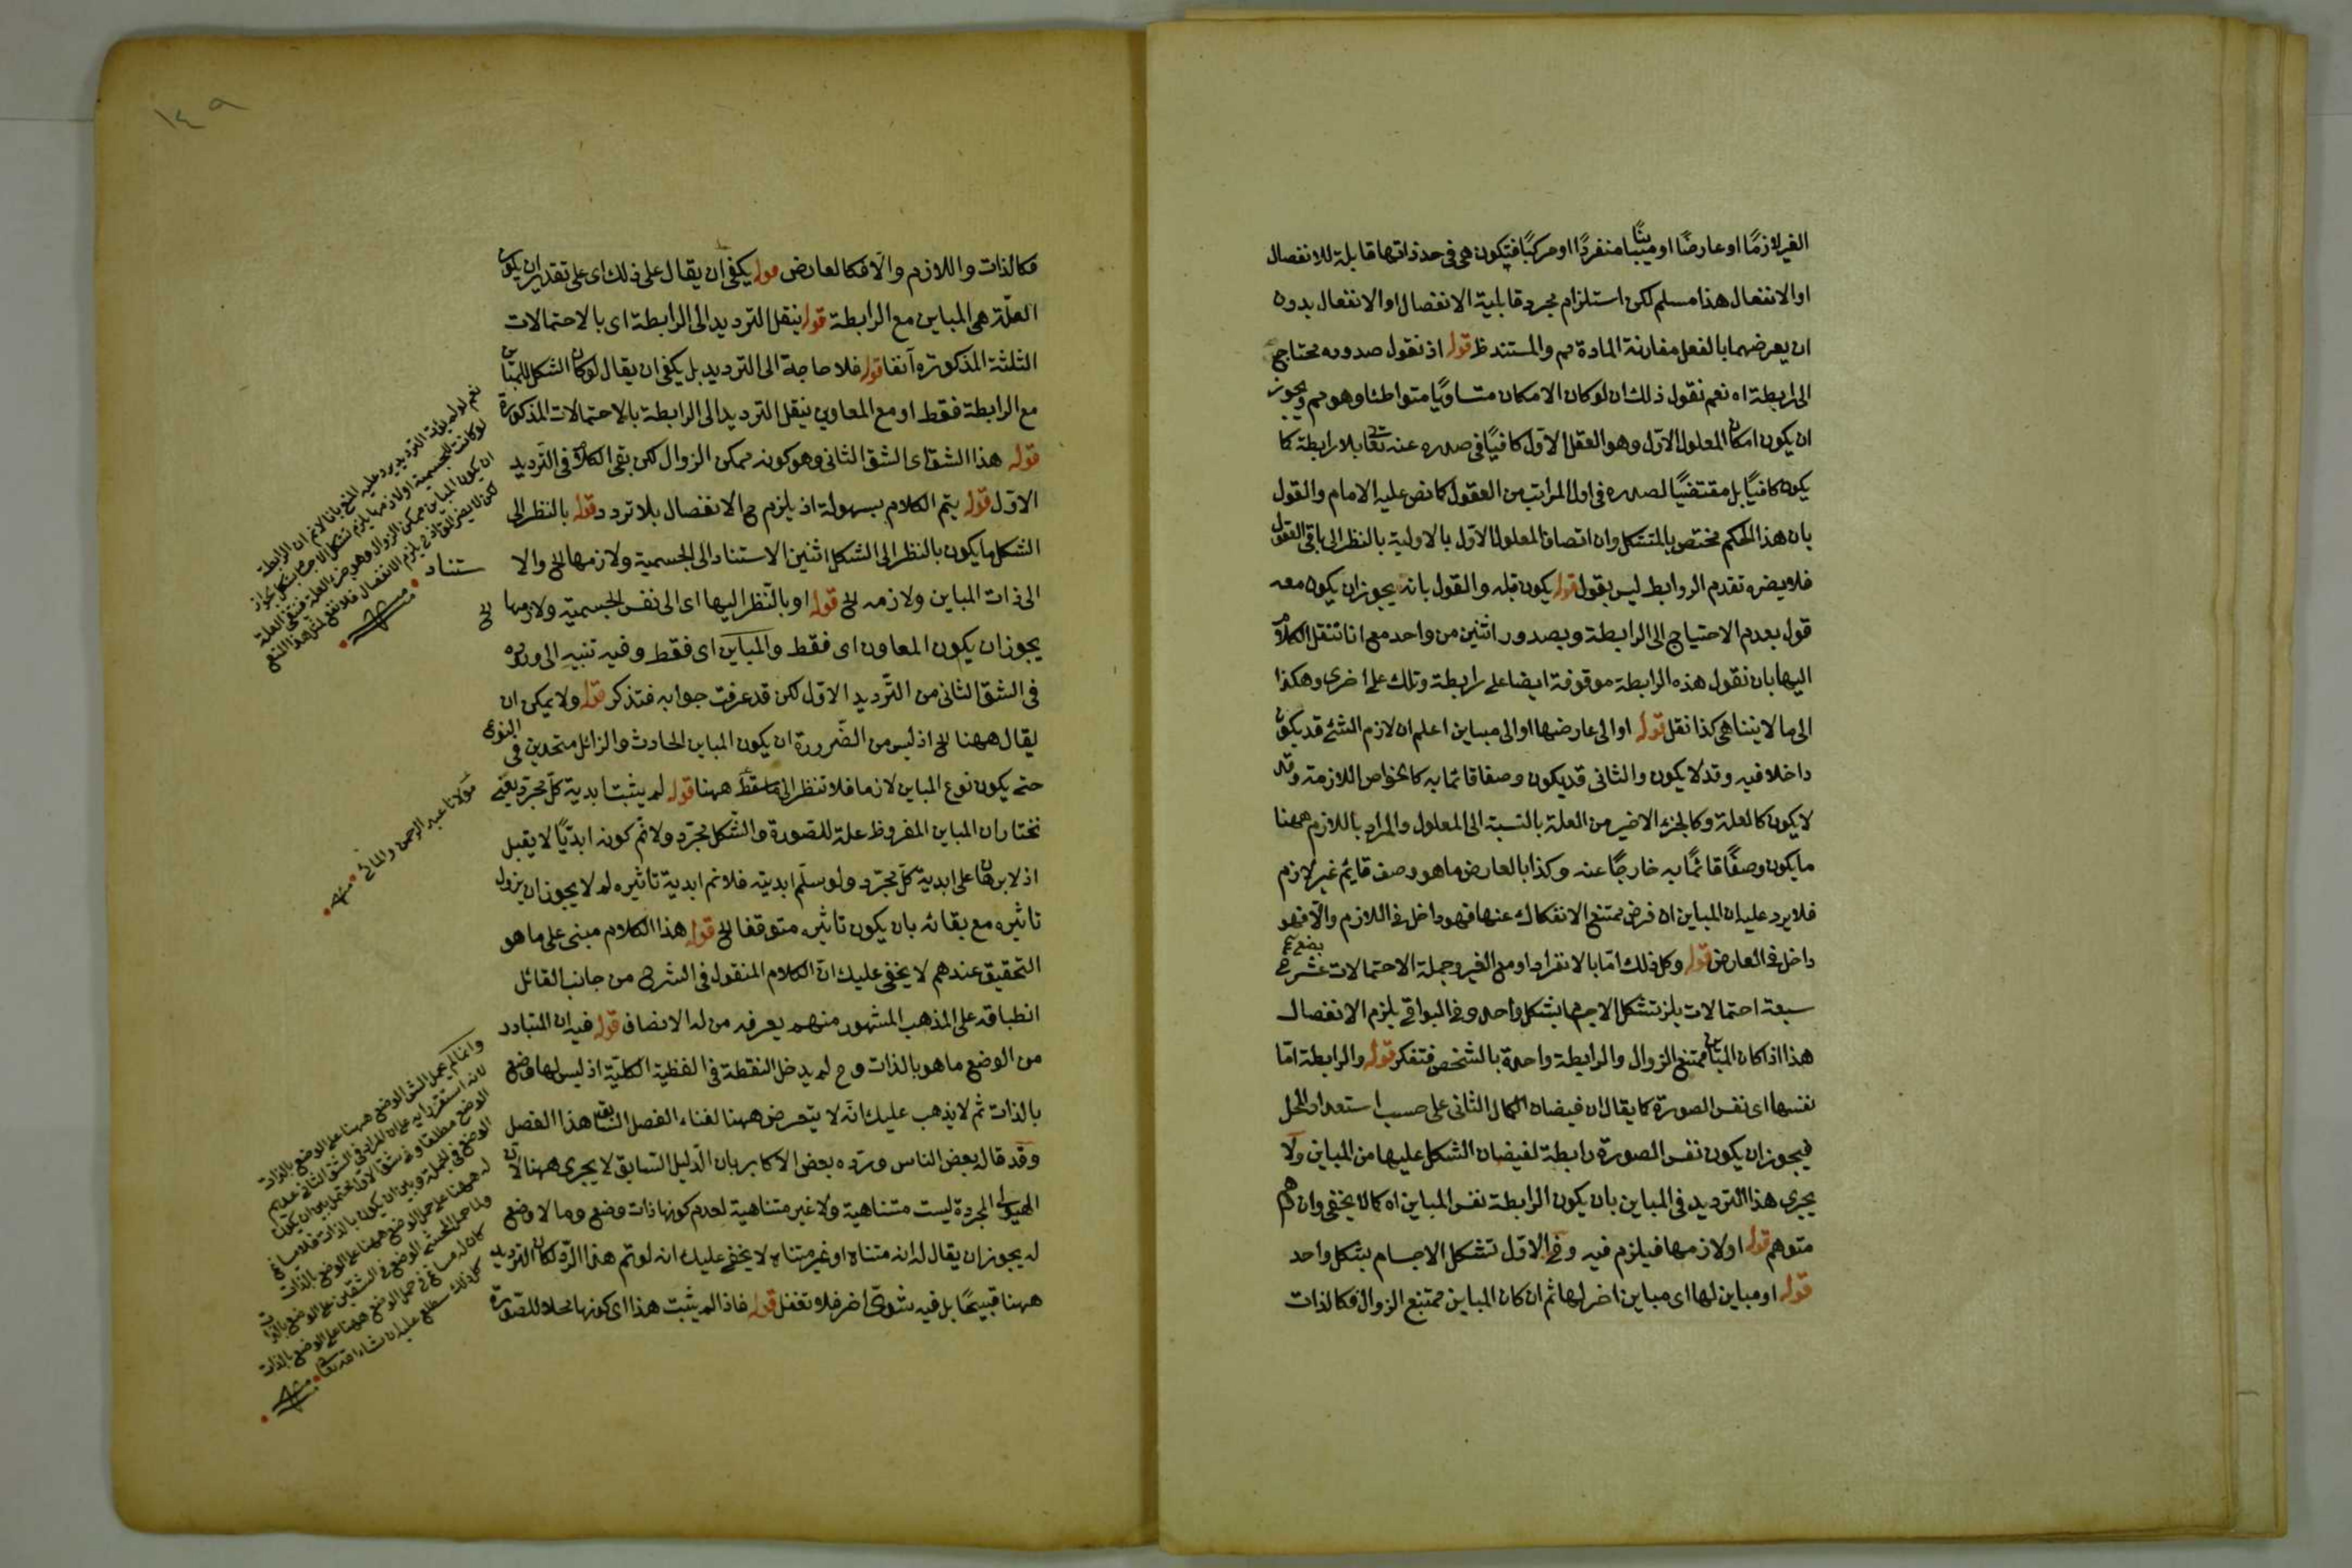 الغير لازمًا او عارضًا او مبينًا منفردًا او مركبًا فتكون هى فى حد ذاتها قابلة للانفصال
او الانفعال هذا مسلم لكن استلزام مجرد قابلية الانفصال او الانفعال بدون
ان يعرضهما بالفعل مقارنة المادة مم والمستند ظ قوله اذ نقول صدوره محتاج
الى رابطة اه نعم نقول ذلك ان لو كان الامكان متساويًا متواطئا وهو مم ويجوز
ان يكون امكان المعلول الاول وهو العقل الاول كافيًا فى صدوره عنه تعا بلا رابطة كا
يكون كافيًا بل مقتضيًا لصدوره فى اول المراتب من العقول كما نص عليه الامام والقول
بان هذا الحكم مختص بالمتشكل وان اتصاف المعلول الاول بالاولية بالنظر الى باقى العقول
فلا يضره تقدم الروابط ليس بقول قوله يكون قبله والقول بانه يجوز ان يكون معه
قول بعدم الاحتياج الى الرابطة وبصدور اثنين من واحد مع انا ننقل الكلام
اليها بان نقول هذه الرابطة موقوفة ايضا على رابطة وتلك على اخرى وهكذا
الى ما لا يتناهى كذا نقل قوله او الى عارضها او الى مباين اعلم ان لازم الشئ قد يكون
داخلا فيه وقد لا يكون والثانى قد يكون وصفا قائما به كالخواص اللازمة وقد
لا يكون كالعلة وكالجزء الاخير من العلة بالنسبة الى المعلول والمراد باللازم ههنا
ما يكون وصفًا قائمًا به خارجًا عنه وكذا بالعارض ما هو وصف قايم غير لازم
فلا يرد عليه ان المباين ان فرض ممتنع الانفكاك عنها فهو داخل فى اللازم والّا فهو
داخل فى العارض قوله وكل ذلك امّا بالانفراد او مع الغير وجملة الاحتمالات عشر
سبعة احتمالات يلزم تشكل الاجسام بشكل واحد وفى البواقى يلزم الانفصال
هذا اذا كان المباين ممتنع الزوال والرابطة واحدة بالشخص فتفكر قوله والرابطة امّا
نفسها اى نفس الصورة كا يقال ان فيضان الكمال الثانى على حسب استعداد المحل
فيجوز ان يكون نفس الصورة رابطة لفيضان الشكل عليها من المباين ولا
يجرى هذا الترديد فى المباين بان يكون الرابطة نفس المباين اه كما لا يخفى وان
متوهم قوله او لازمها فيلزم فيه وفى الاول تشكل الاجسام بشكل واحد
قوله او مباين لها اى مباين اخر لها ثم ان كان المباين ممتنع الزوال فكالذات
١٤٩
فكالذات واللازم والّا فكالعارض قوله يكفى ان يقال على ذلك اى على تقدير ان يكون
العلّة هى المباين مع الرابطة قوله ينقل الترديد الى الرابطة اى بالاحتمالات
الثلثة المذكورة آنفا قوله فلا حاجة الى الترديد بل يكفى ان يقال لو كان الشكل للمباين
مع الرابطة فقط او مع المعاوين ننقل الترديد الى الرابطة بالاحتمالات المذكورة
قوله هذا الشق اى الشق الثانى وهو كونه ممكن الزوال لكن بقى الكلام فى الترديد
الاول قوله يتم الكلام بسهولة اذ يلزم ح الانفصال بلا تردد قوله بالنظر الى
الشكل ما يكون بالنظر الى الشكل اثنين الاستناد الى الجسمية ولازمها الخ والا
ستناد
الى ذات المباين ولازمه الخ قوله او بالنظر اليها اى الى نفس الجسمية ولازمها الخ
يجوز ان يكون المعاون اى فقط والمباين اى فقط وفيه تنبيه الى وروده
فى الشق الثانى من الترديد الاول لكن قد عرفت جوابه فتذكر قوله ولا يمكن ان
يقال ههنا الخ اذ ليس من الضرورة ان يكون المباين الحادث والزائل متحدين فى النوع
حتى يكون نوع المباين لازما فلا تنظر الى ما سقط ههنا قوله لم يثبت ابدية كل مجرد يعنى
نختار ان المباين المفروض علة للصورة والشكل مجرّد ولا نم كونه ابديًا لا يقبل
اذ لا برهان على ابدية كل مجرّد ولو سلّم ابديته فلا نم ابدية تاثيره لم لا يجوز ان يزول
تاثيره مع بقائه بان يكون تاثيره متوقفا الخ قوله هذا الكلام مبنى على ما هو
التحقيق عندهم لا يخفى عليك ان الكلام المنقول فى الشرح من جانب القائل
انطباقه على المذهب المشهور منهم يعرفه من له الانصاف قوله فيه ان المتبادر
من الوضع ما هو بالذات وح لم يدخل النقطة فى الكلية اذ ليس لها وضع
بالذات ثم لا يذهب عليك انه لا يتعرض ههنا لفناء الفصل السابق هذا الفصل
وقد قاله بعض الناس وردّه بعض الاكابر بان الدليل السابق لا يجرى ههنا لان
الهيولى المجردة ليست متناهية ولا غير متناهية لعدم كونها ذات وضع وما لا وضع
له يجوز ان يقال له انه متناه او غير متناه لا يخفى عليك انه لو تم هذا الرّد لكان الترديد
ههنا قبيحًا بل فيه شوق اخر فلا تغفل قوله فاذا لم يثبت هذا اى كونها محلا للصورة
ان يكون المباين ممكن الزوال
مولانا عبد الرحمن
وانما لم يحمل الشق الوضع ههنا على الوضع بالذات
كان له مساغ فى حمل الوضع ههنا على الوضع بالذات
كل ذلك سطلع عليه ان شاء الله تعا